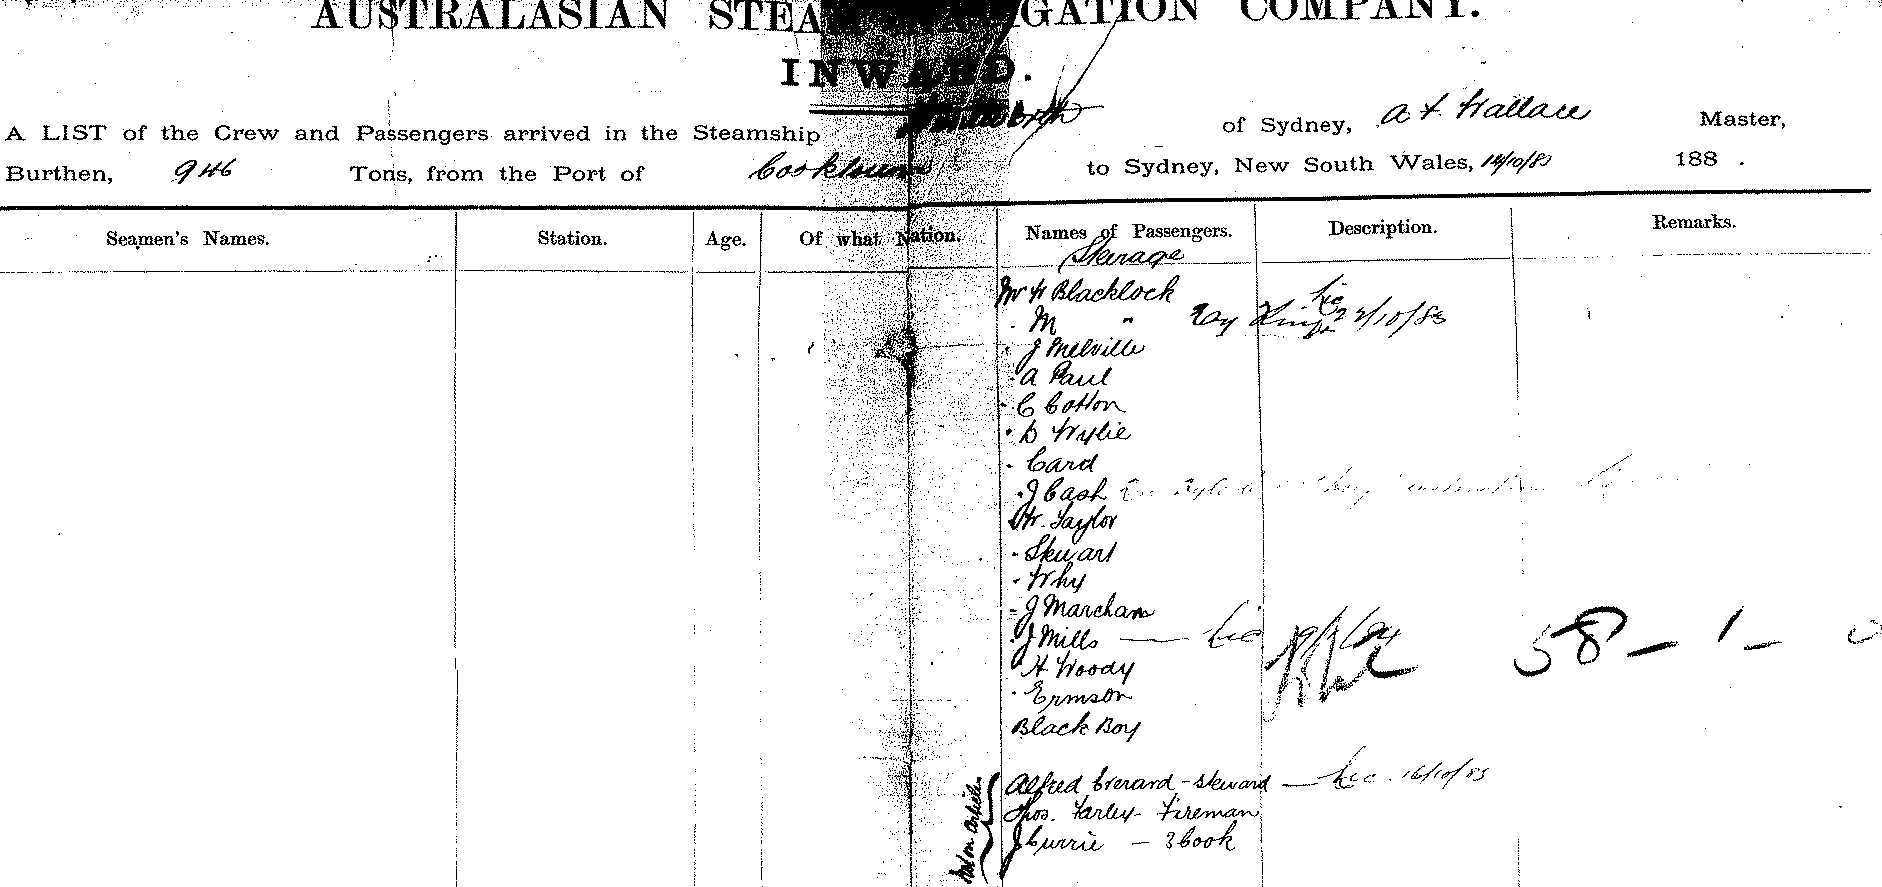 AUSTRALASIAN STEAM NAVIGATION COMPANY.
INWARD.
A LIST of the Crew and Passengers arrived in the Steamship of Sydney, A F Wallace Master,
Burthen, 946 Tons, from the Port of Cooktown to Sydney, New South Wales, 14/10/83 188 .
Seamen's Names. Station. Age. Of what Nation. Names of Passengers. Description. Remarks.
Steerage
Mr H Blacklock
" M " 22/10/83
" J Melville
" A Paul
" C Cotton
" D Wylie
" Card
" J Cash
W. Taylor
" Stewart
" Why
" J Marcham
" J Mills —
" H Woody
" Ermson
Black Boy
58 - 1 - 0
Alfred Everard - Steward — 16/10/83
Thos. Farley - Fireman
J Currie — 3 Cook
Not on Articles